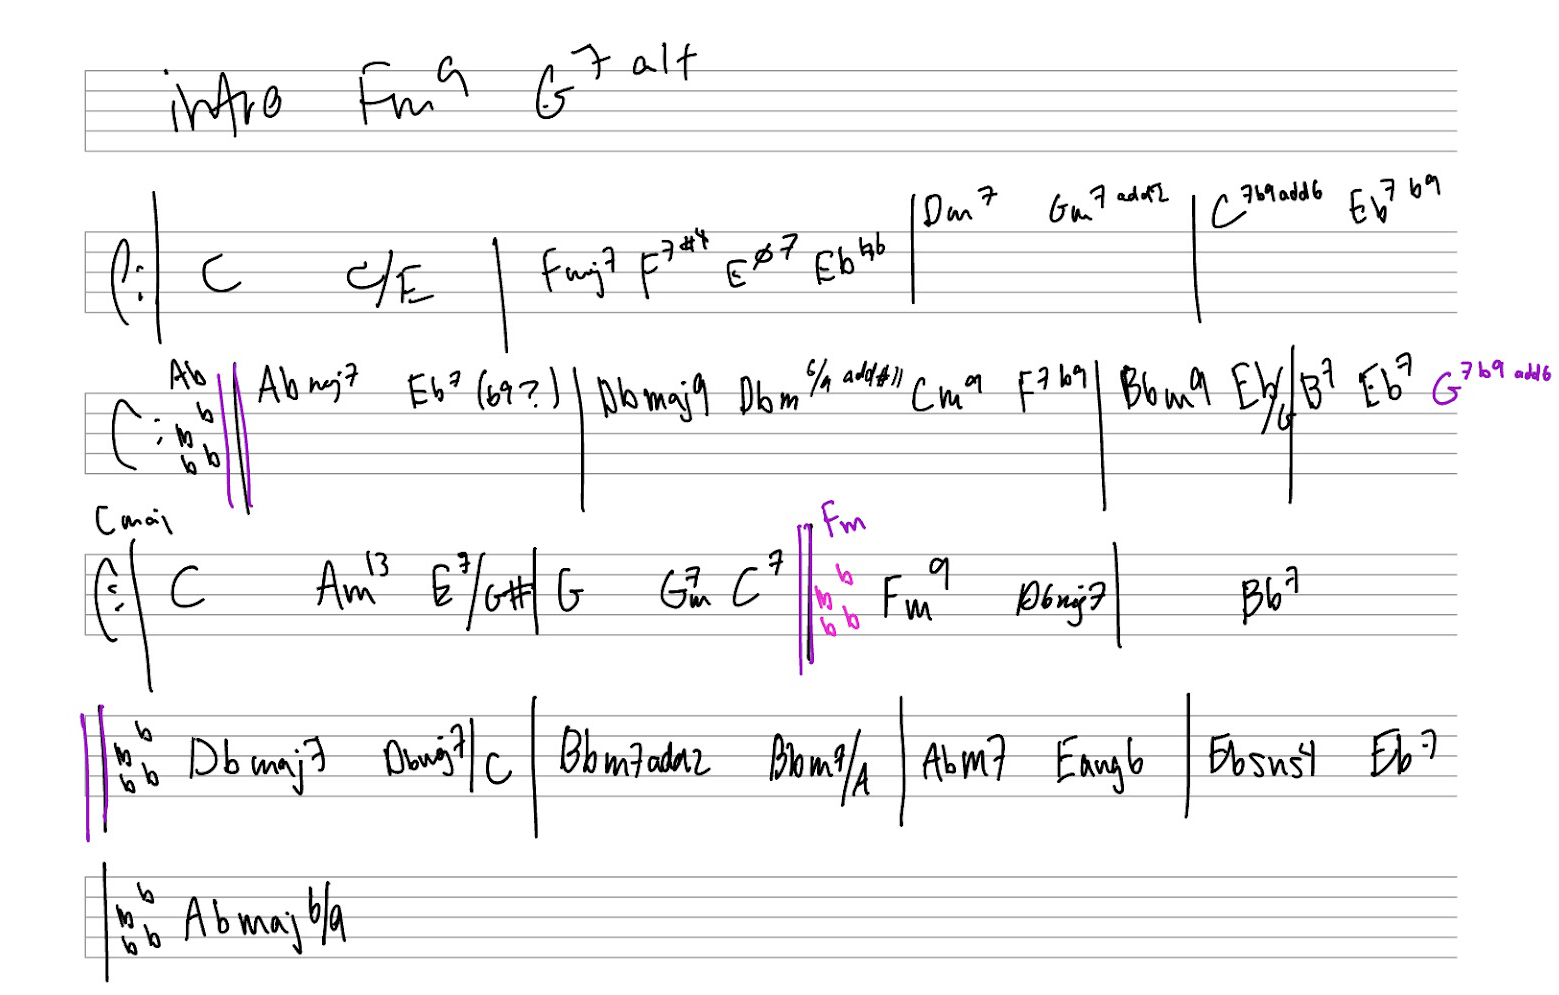 intro Fm9 G7 alt
C C/E | Fmaj7 F7#4 EØ7 | Dm7 Gm7 add2 | C7b9add6 Eb7b9
Ab b b b b || Abmaj7 Eb7 (b9?) | Dbmaj9 Dbm6/9 add#11 Cm9 F7b9 | Bbm9 Eb/G | B7 Eb7 G7b9 add6
Cmaj
C Am13 E7/G# | G Gm7 C7 || Fm b b b b Fm9 Dbmaj7 | Bb7
|| b b b b Dbmaj7 Dbmaj7/C | Bbm7add2 Bbm7/A | Abm7 Eaug6 | Ebsus4 Eb7
| b b b b Abmaj6/9